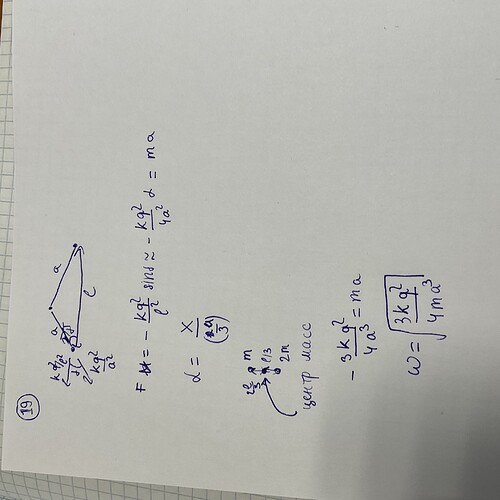 19
a
a
l
kq²/l²
kq²/a²
F = - kq²/l² sinα ≈ - kq²/4a² α = ma
α = x/(2a/3)
m
2l/3
l/3
2m
центр масс
- 3kq²/4a³ = ma
ω = √(3kq²/4ma³)